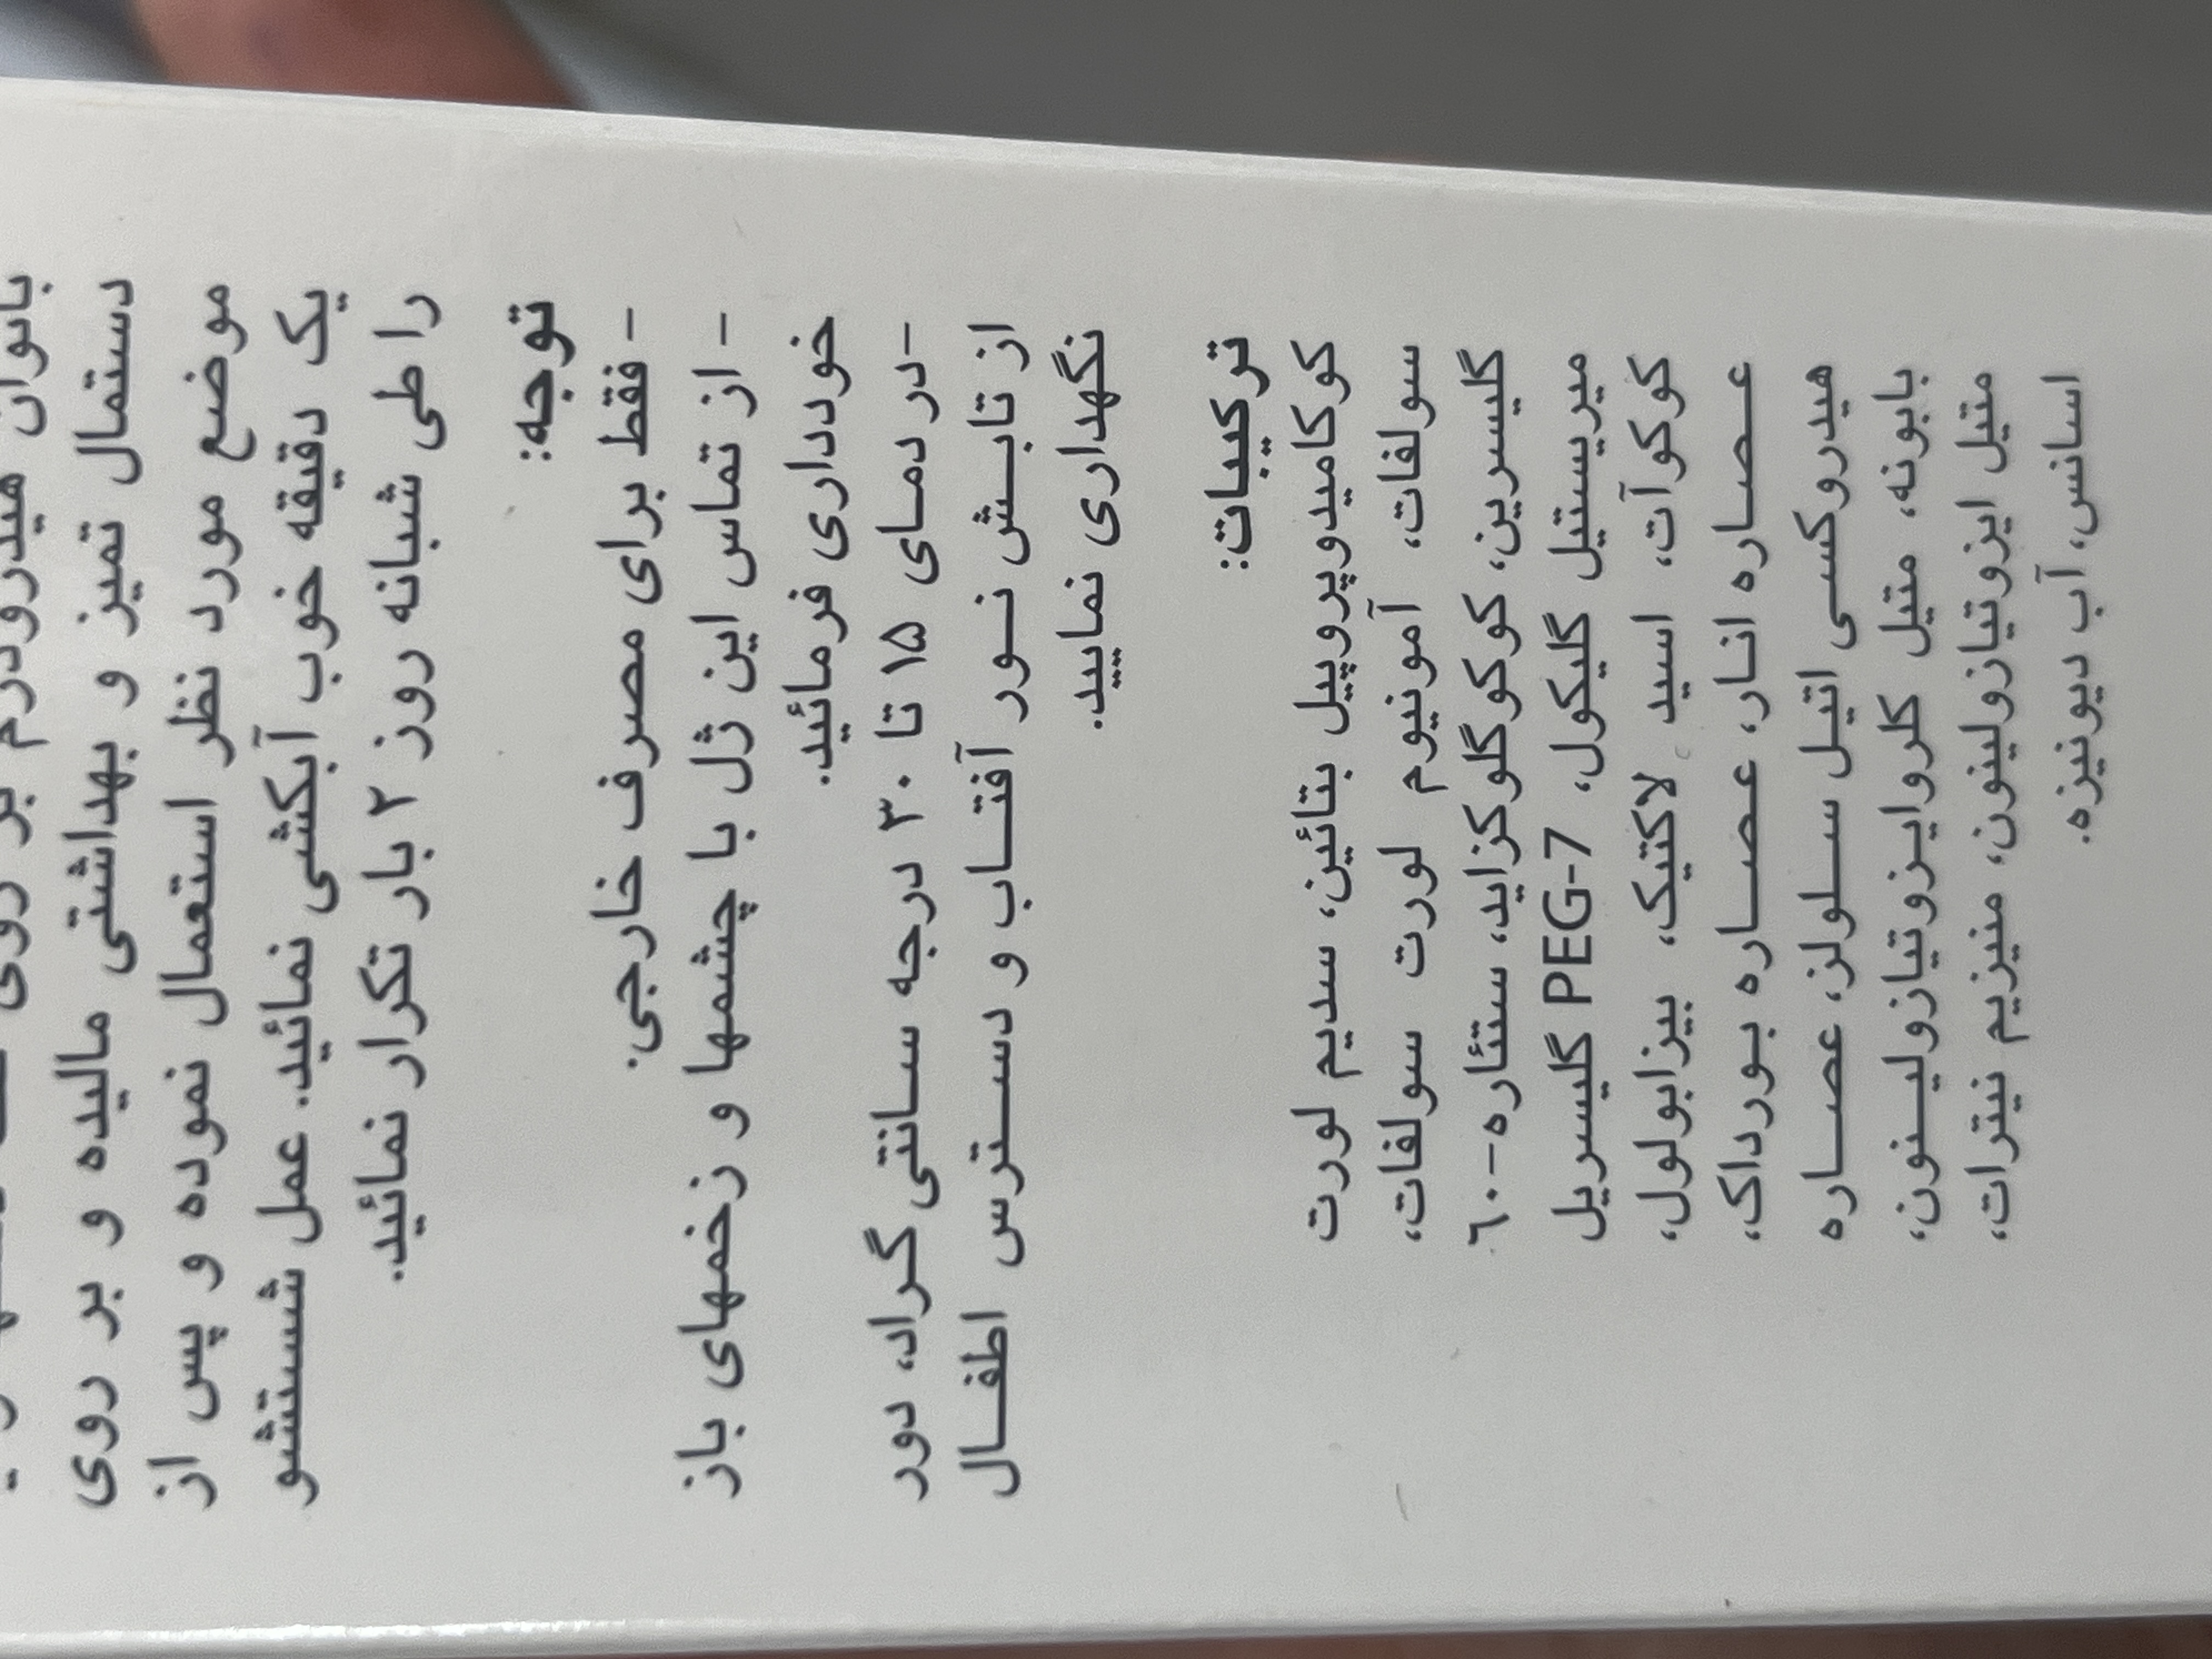 بانوان هیدرودرم بر روی
دستمال تمیز و بهداشتی مالیده و بر روی
موضع مورد نظر استعمال نموده و پس از
یک دقیقه خوب آبکشی نمائید. عمل شستشو
را طی شبانه روز ۲ بار تکرار نمائید.
توجه:
- فقط برای مصرف خارجی.
- از تماس این ژل با چشمها و زخمهای باز
خودداری فرمائید.
-در دمای ۱۵ تا ۳۰ درجه سانتی گراد، دور
از تابش نور آفتاب و دسترس اطفال
نگهداری نمایید.
ترکیبات:
کوکامیدوپروپیل بتائین، سدیم لورت
سولفات، آمونیوم لورت سولفات،
گلیسرین، کوکوگلوکزاید، ستئاره-٦٠
میریستیل گلیکول، PEG-7 گلیسریل
کوکوآت، اسید لاکتیک، بیزابولول،
عصاره انار، عصاره بورداک،
هیدروکسی اتیل سلولز، عصاره
بابونه، متیل کلروایزوتیازولینون،
متیل ایزوتیازولینون، منیزیم نیترات،
اسانس، آب دیونیزه.